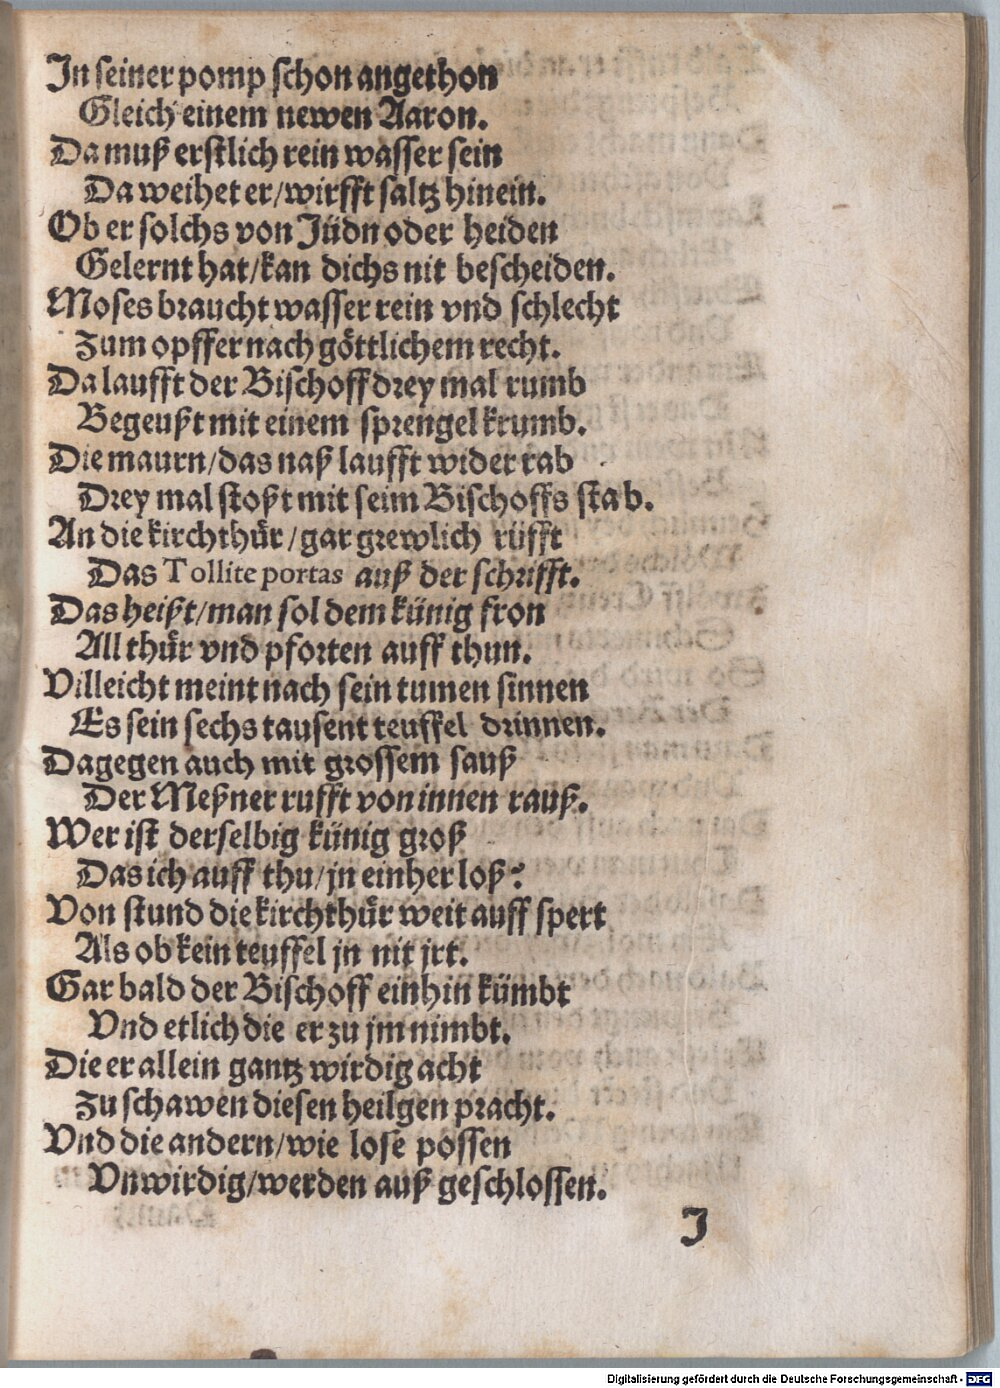 In seiner pomp schon angethon
Gleich einem newen Aaron.
Da muß erstlich rein wasser sein
Da weihet er/wirfft saltz hinein.
Ob er solchs von Jüdn oder heiden
Gelernt hat/kan dichs nit bescheiden.
Moses braucht wasser rein vnd schlecht
Zum opffer nach göttlichem recht.
Da laufft der Bischoff drey mal rumb
Begeußt mit einem sprengel krumb.
Die maurn/das naß laufft wider rab
Drey mal stoßt mit seim Bischoffs stab.
An die kirchthür/gar grewlich rüfft
Das Tollite portas auß der schrifft.
Das heißt/man sol dem künig fron
All thür vnd pforten auff thun.
Villeicht meint nach sein tumen sinnen
Es sein sechs tausent teuffel drinnen.
Dagegen auch mit grossem sauß
Der Meßner rufft von innen rauß.
Wer ist derselbig künig groß
Das ich auff thu/jn einher loß?
Von stund die kirchthür weit auff spert
Als ob kein teuffel jn nit jrt.
Gar bald der Bischoff einhin kümbt
Vnd etlich die er zu jm nimbt.
Die er allein gantz wirdig acht
Zu schawen diesen heilgen pracht.
Vnd die andern/wie lose possen
Vnwirdig/werden auß geschlossen.
J
Digitalisierung gefördert durch die Deutsche Forschungsgemeinschaft - DFG